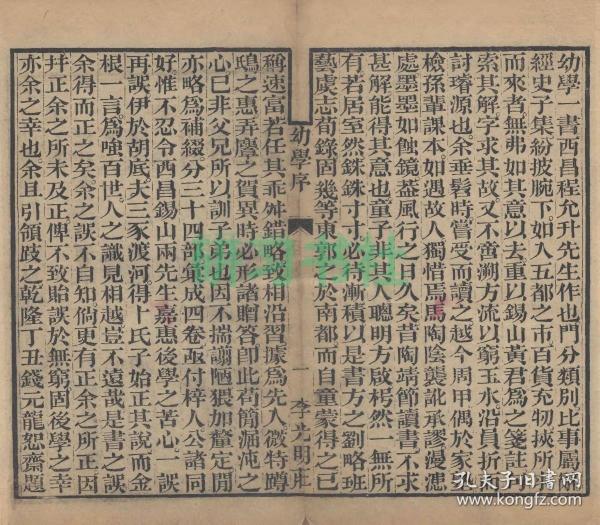 幼學一書西昌程允升先生作也門分類別比事屬
經史子集紛披腕下如入五都之市百貨充牣挾所
而來者無弗如其意以去重以錫山黃君為之箋註
索其解字求其故又不啻溯方流以窮玉水沿員折
討璿源也余垂髫時嘗受而讀之越今周甲偶於家
檢孫輩課本如遇故人獨惜焉馬陶陰襲訛承謬漫漶
處墨墨如蝕鏡蓋風行之日久矣昔陶靖節讀書不求
甚解能得其意也童子非其人聰明方啟梲然一無所
有若居室然銖銖寸寸必待漸積以是書方之劉略班
藝虞志荀錄固幾等東郭之於南都而自童蒙得之已
幼學序
一
李光明庄
稱速富若任其乖舛錯略致相沿習據為先入微特蹲
鴟之惠弄麞之賀異時必形諸贈答卽此荀簡涽沌之
心巳非父兄所以訓子弟也因不揣謭陋猥加釐定閒
亦略為補綴分三十四部彙成四卷亟付梓人公諸同
好惟不忍令西昌錫山兩先生嘉惠後學之苦心一誤
再誤伊於胡底夫三豕渡河得卜氏子始正其說而金
根一言為嗤百世人之識見相越豈不遠哉是書之誤
余得而正之矣余之誤不自知倘更有正余之所正因
幷正余之所未及正俾不致貽誤於無窮固後學之幸
亦余之幸也余且引領跂之乾隆丁丑錢元龍恕齋題
孔夫子旧书网
www.kongfz.com